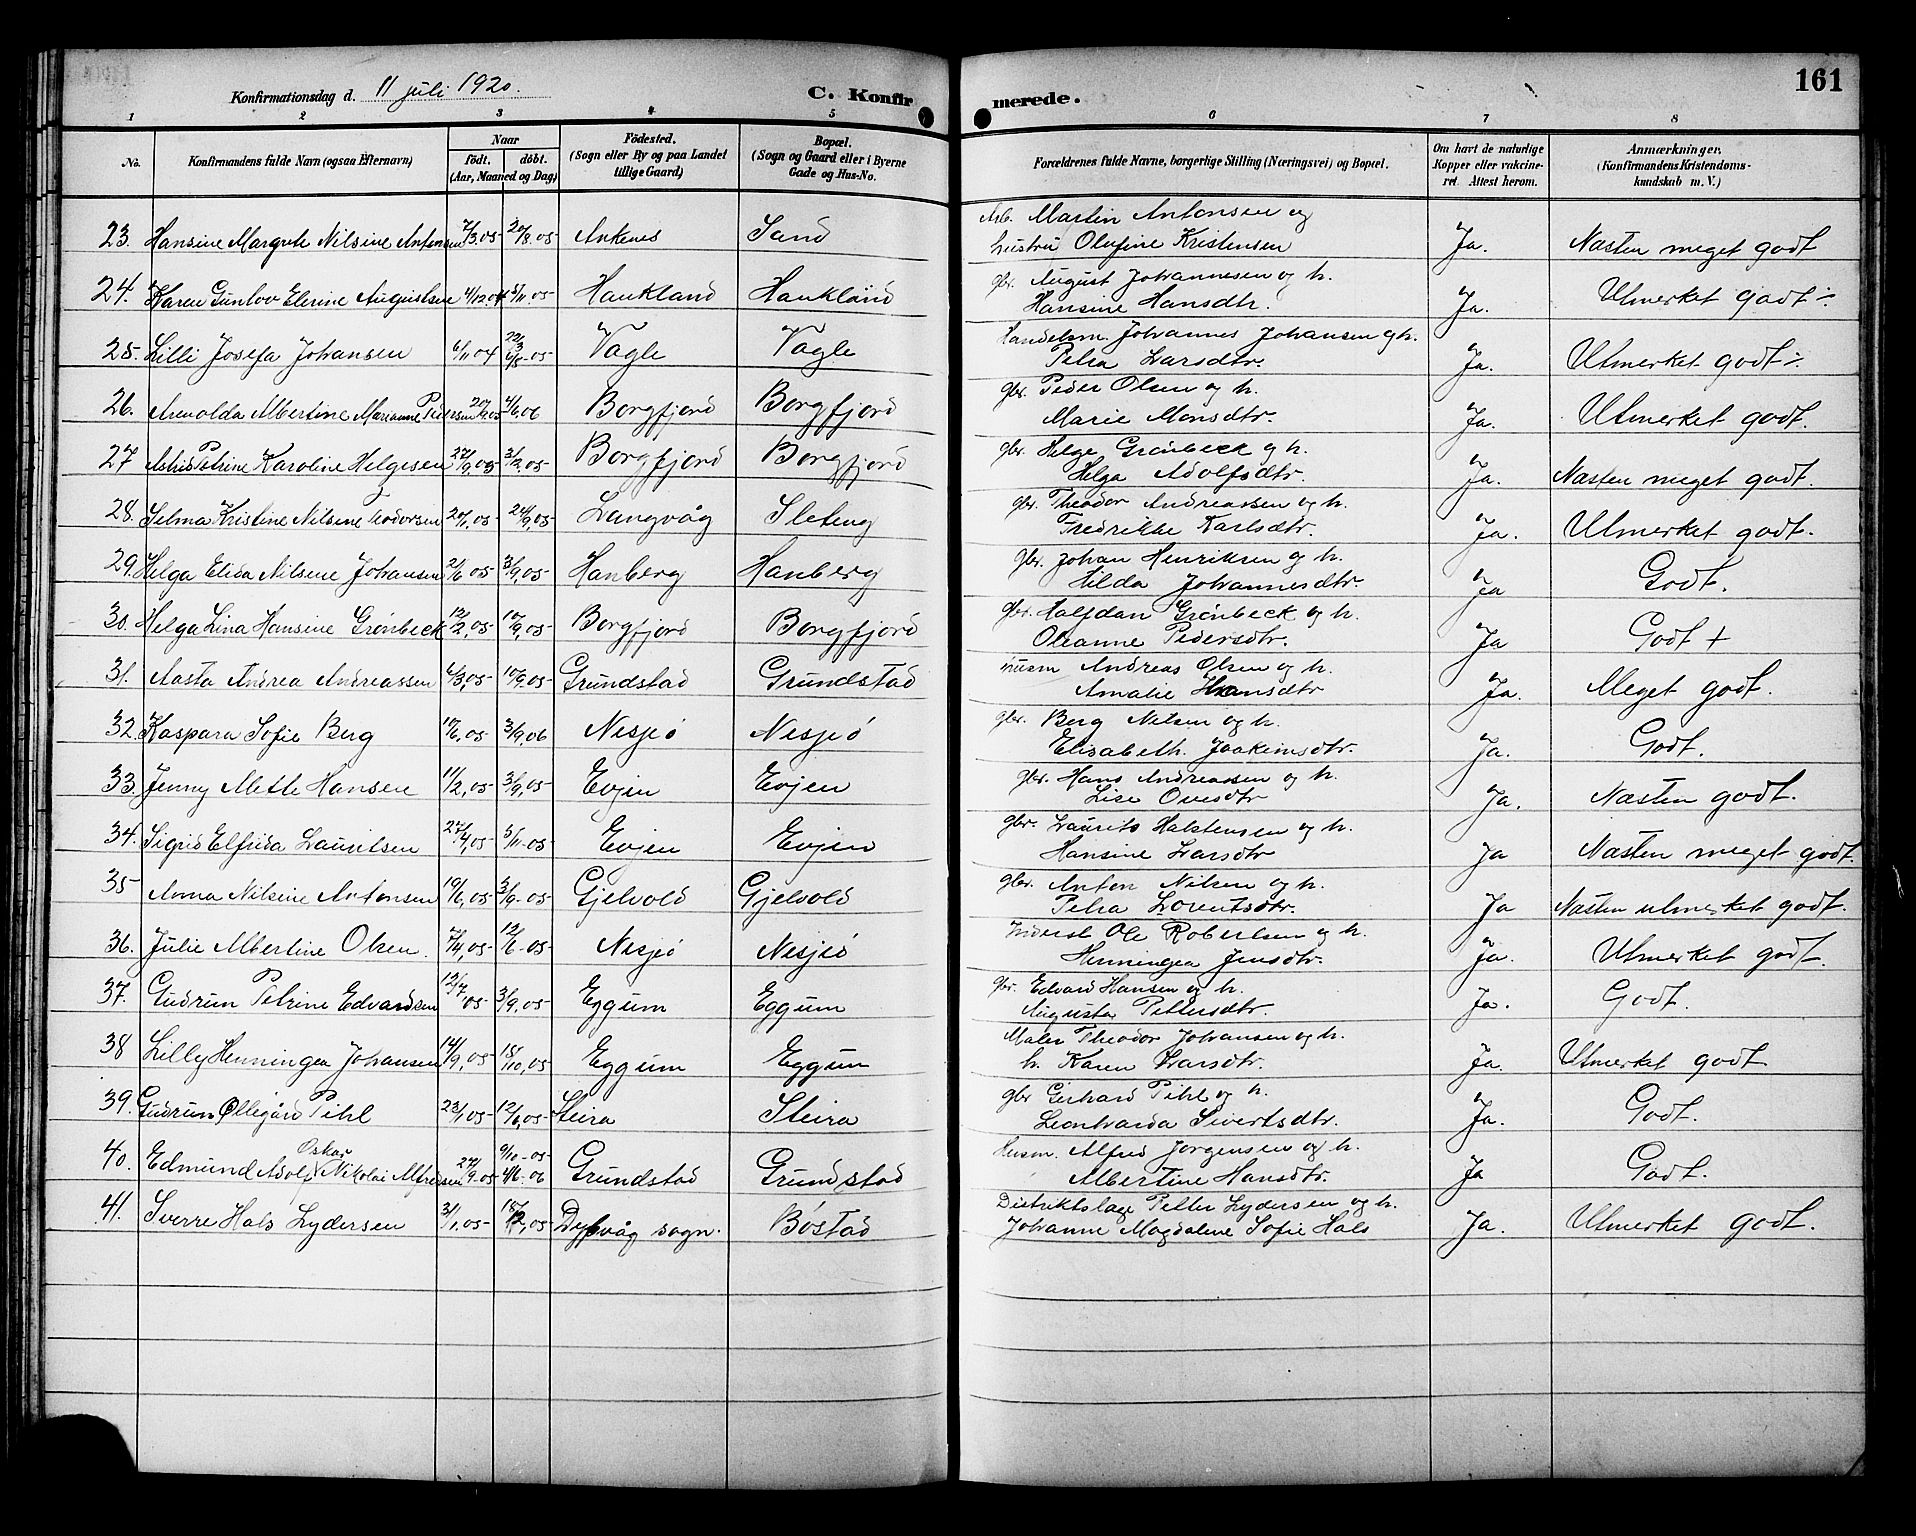 161
Konfirmationsdag d. 11 juli 1920.
C. Konfirmerede.
1 2 3 4 5 6 7 8
No. Konfirmandens fulde Navn (ogsaa Efternavn) Naar födt. döbt. (Aar, Maaned og Dag) Födested. (Sogn eller By og paa Landet tillige Gaard) Bopæl. (Sogn og Gaard eller i Byerne Gade og Hus-No. Forældrenes fulde Navne, borgerlige Stilling (Næringsvei) og Bopæl. Om havt de naturlige Kopper eller vakcineret. Attest herom. Anmærkninger. (Konfirmandens Kristendomskundskab m. V.)
23. Hansine Margrete Nilsine Antonsen 7/3.05 20/8.05 Ankenes Sand Arb. Martin Antonsen og hustru Olufine Kristensen Ja. Næsten meget godt
24. Karen Gunlov Elerine Augustsen 4/12.04 5/11.05 Haukland Haukland gbr. August Johannesen og h. Hansine Hansdtr. Ja. Utmerket godt ÷
25. Lilli Josefa Johansen 6/11 04 22/3 6/8-05 Vagle Vagle Handelsm Johannes Johansen og h. Petra Larsdtr. Ja. Utmerket godt ÷
26. Arnolda Albertine Marianne Pedersen 4/6.06 Borgfjord Borgfjord gbr. Peder Olsen og h. Marie Monsdtr. Ja. Utmerket godt.
27 Astrid Petrine Karoline Helgesen 27/9.05 3/12.05 Borgfjord Borgfjord gbr. Helge Grönbeck og h. Helga Adolfsdtr. Ja. Næsten meget godt.
28. Selma Kristine Nilsine Teodorsen 20/1.05 24/9.05 Langvåg Sleteng gbr. Theodor Andreassen og h. Fredrikke Karlsdtr. Ja. Utmerket godt.
29. Helga Elida Nilsine Johansen 2/6 05 3/9.05 Hanberg Hanberg gbr. Johan Henriksen og h. Hilda Johannesdtr. Ja Godt.
30. Helga Lina Hansine Grönbeck 12/2.05 10/9.05 Borgfjord Borgfjord gbr. Halfdan Grönbeck og h. Oleanne Pedersdtr. Ja Godt +
31. Aasta Andrea Andreassen 6/3.05 10/9.05 Grundstad Grundstad Husm Andreas Olsen og h. Amalie Hansdtr Ja. Meget godt.
32. Kaspara Sofie Berg 10/6.05 3/9.06 Nesjeö Nesjeö gbr. Berg Nilsen og h. Elisabeth. Joakimsdtr. Ja. Godt.
33. Jenny Mette Hansen 11/2.05 3/9.05 Evjen Evjen gbr. Hans Andreassen og h. Lise Ovesdtr Ja. Næsten godt.
34. Sigrid Elfrida Lauritsen 27/4.05 3/11-05 Evjen Evjen gbr. Laurits Halstensen og h. Hansine Larsdtr Ja Næsten meget godt.
35 Anna Nilsine Antonsen 19/6.05 3/9-05 Gjelvold Gjelvold gbr. Anton Nilsen og h. Petra Lorentsdtr. Ja Næsten utmerket godt.
36. Julie Albertine Olsen. 7/4.05 12/6-05 Nesjeö Nesjeö Inderst Ole Robertsen og h. Henningea Jensdtr. Ja. Utmerket godt.
37. Gudrun Petrine Edvardsen 12/7 05 3/9.05 Eggum Eggum gbr. Edvard Hansen og h. Augusta Pettersdtr. Ja. Godt.
38 Lilly Henningea Johansen 14/9.05 15/10.05 Eggum Eggum Maler Theodor Johansen og h. h. Karen Larsdtr. Ja Utmerket godt.
39. Gudrun Ollegård Pihl 23/1.05 12/6.05 Steira Steira gbr Gerhard Pihl og h. Leonharda Sivertsdtr. Ja. Godt.
40. Edmund Adolf Oskar Nikolai Alfredsen 27/9.05 9/10-05 4/6-06 Grundstad Grundstad Husm. Alfred Jörgensen og h. Albertine Hansdtr. Ja Godt.
41. Sverre Hals Lydersen 3/1.05 Dypvåg sogn. Böstad Distriktslæge Petter Lydersen og h. Johanne Magdalene Sofie Hals Ja. Utmerket godt.